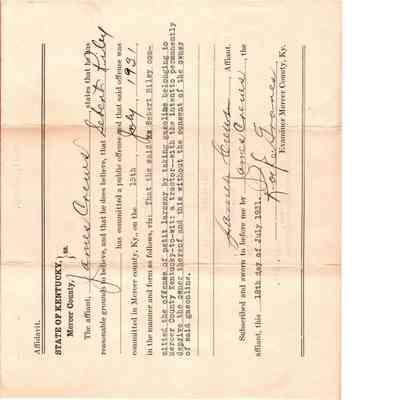 Affidavit.
STATE OF KENTUCKY, } ss.
Mercer County,
The affiant, James Crews states that he has
reasonable grounds to believe, and that he does believe, that Hebert Riley
has committed a public offense and that said offense was
committed in Mercer county, Ky., on the 15th July, 1931.
in the manner and form as follows, viz: That the said Hebert Riley com-
mitted the offense of petit larceny by taking gasoline belonging to
Mercer County Kentucky-to-wit: a tractor--with the intentto permanently
deprive the owner thereof and this without the consent of the owner
of said gasonline.
James Crews Affiant.
Subscribed and sworn to before me by James Crews, the
affiant, this 18th day of July 1931.
Examiner Mercer County, Ky.